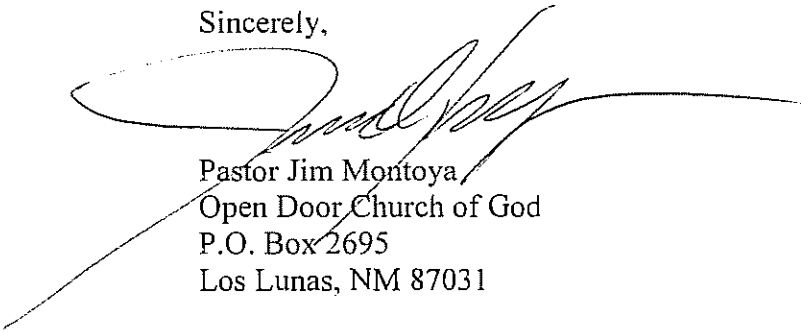 Sincerely,
Pastor Jim Montoya
Open Door Church of God
P.O. Box 2695
Los Lunas, NM 87031